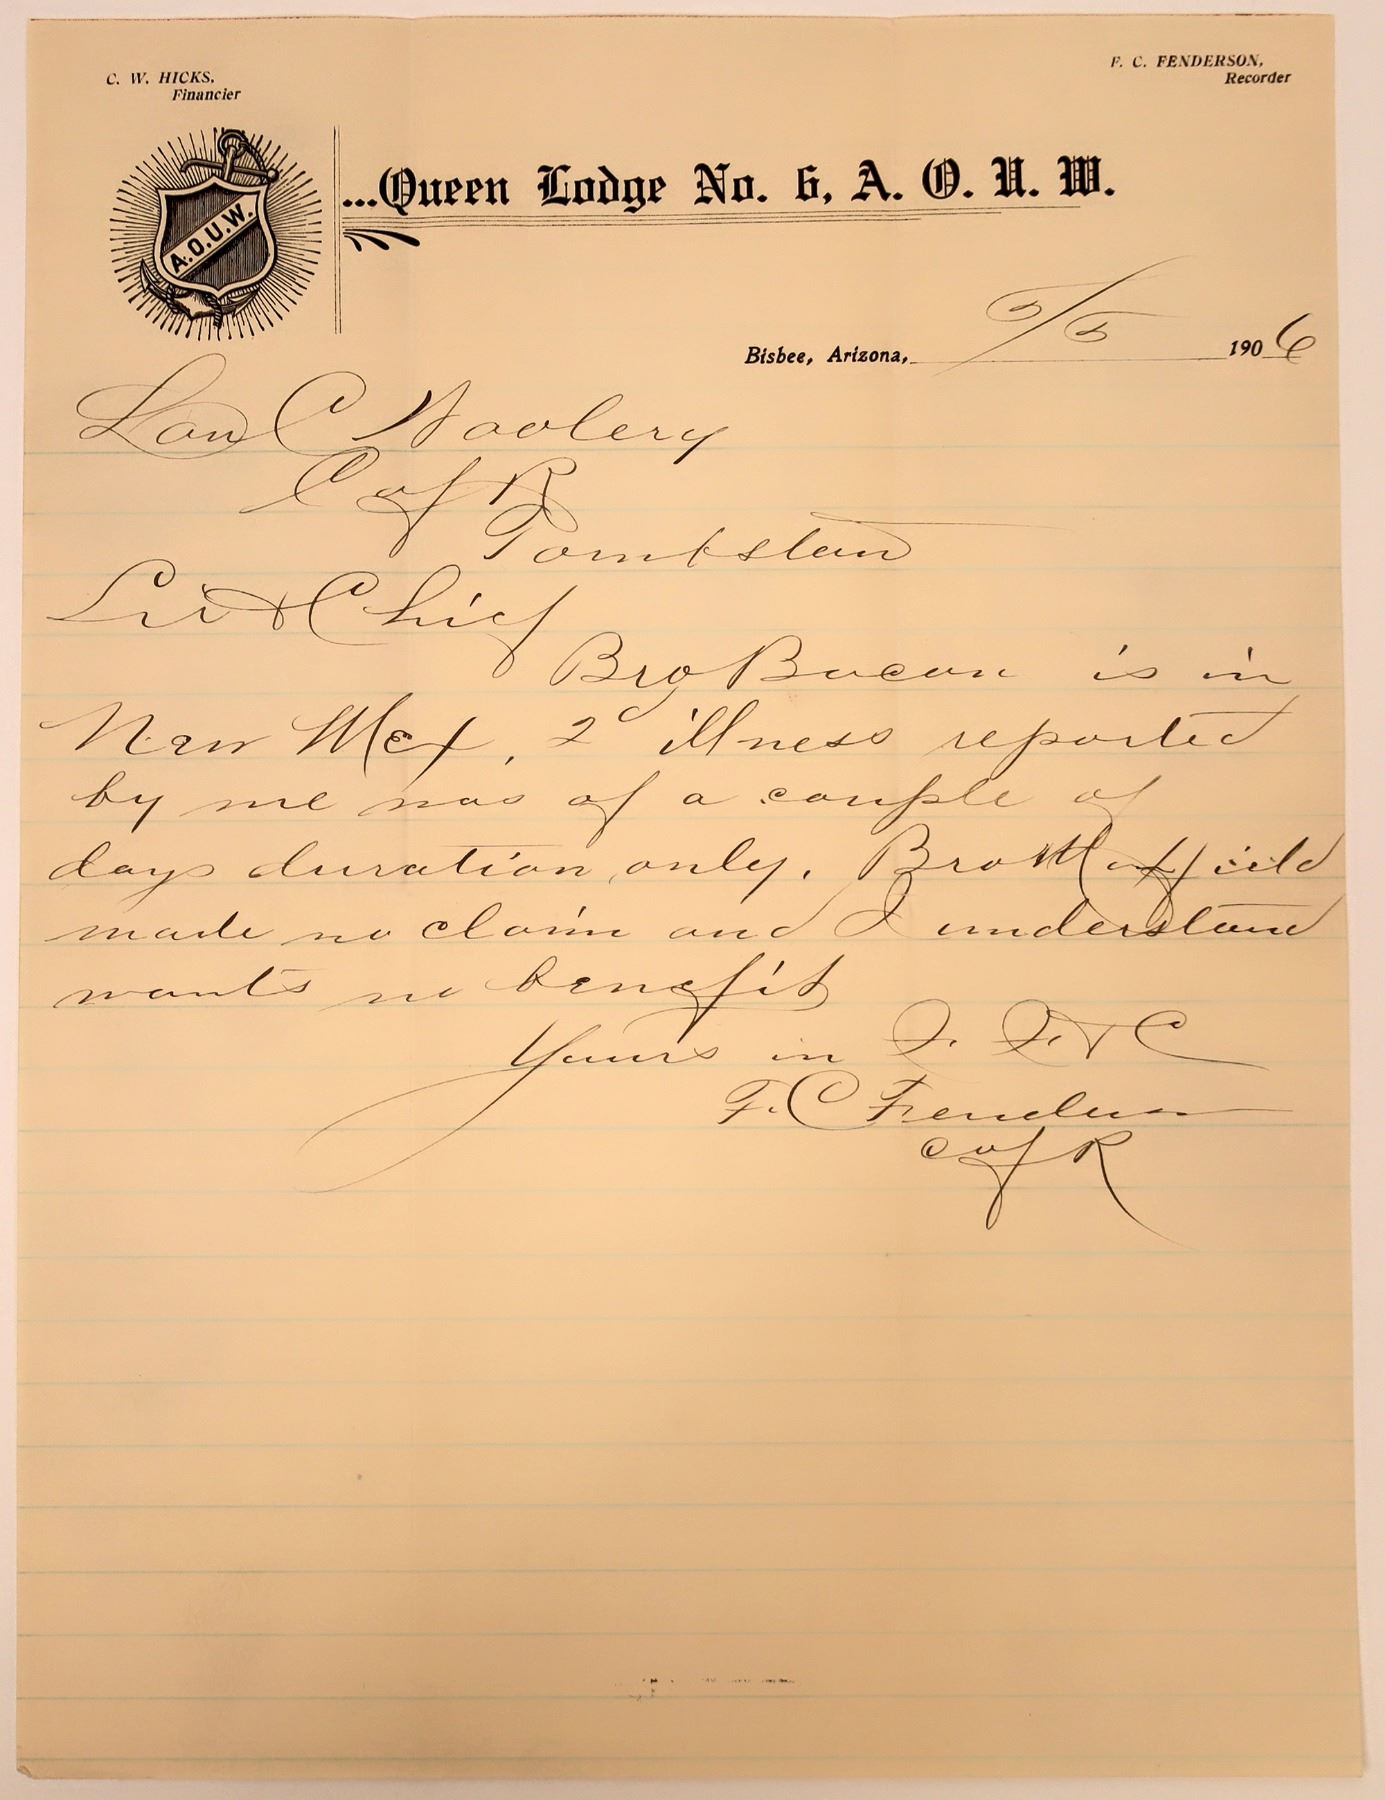 C. W. HICKS,
Financier
F. C. FENDERSON,
Recorder
A.O.U.W.
...Queen Lodge No. 6, A. O. U. W.
Bisbee, Arizona, 5/5 1906
Lou C Woolery
C of R
Tombstone
Sir & Chief
Bro Bacon is in
New Mex, 2d illness reported
by me was of a couple of
days duration, only. Bro
made no claim and I understand
wants no benefit
Yours in F. F. & C
F. C Fenderson
C of R